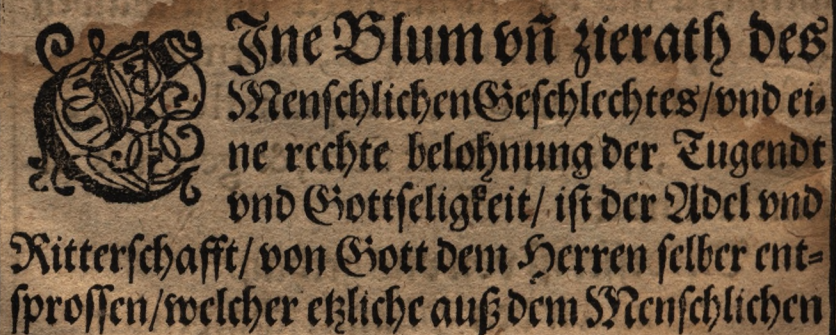 EIne Blum vñ zierath des
Menschlichen Geschlechtes/ vnd ei-
ne rechte belohnung der Tugendt
vnd Gottseligkeit/ ist der Adel vnd
Ritterschafft/ von Gott dem Herren selber ent-
sprossen/ welcher etzliche auß dem Menschlichen